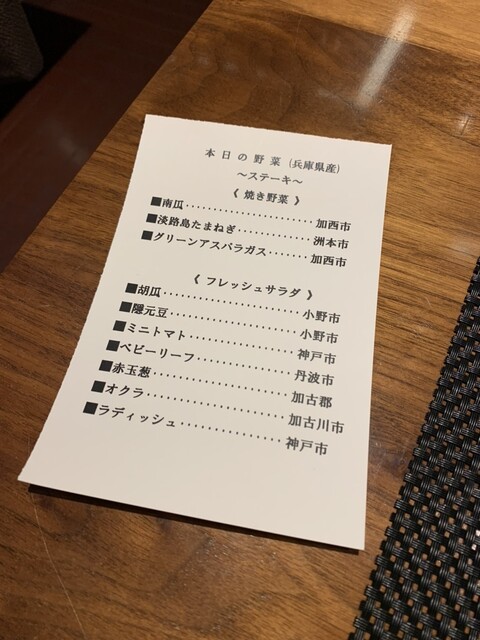 本日の野菜 (兵庫県産)
～ステーキ～
《 焼き野菜 》
■南瓜・・・・・・・・・・・・・・・・・・・・加西市
■淡路島たまねぎ・・・・・・・・・・・・洲本市
■グリーンアスパラガス・・・・・・・加西市
《 フレッシュサラダ 》
■胡瓜・・・・・・・・・・・・・・・・・・・・・小野市
■隠元豆・・・・・・・・・・・・・・・・・・・小野市
■ミニトマト・・・・・・・・・・・・・・・・神戸市
■ベビーリーフ・・・・・・・・・・・・・・丹波市
■赤玉葱・・・・・・・・・・・・・・・・・・・加古郡
■オクラ・・・・・・・・・・・・・・・・・・・加古川市
■ラディッシュ・・・・・・・・・・・・・・神戸市